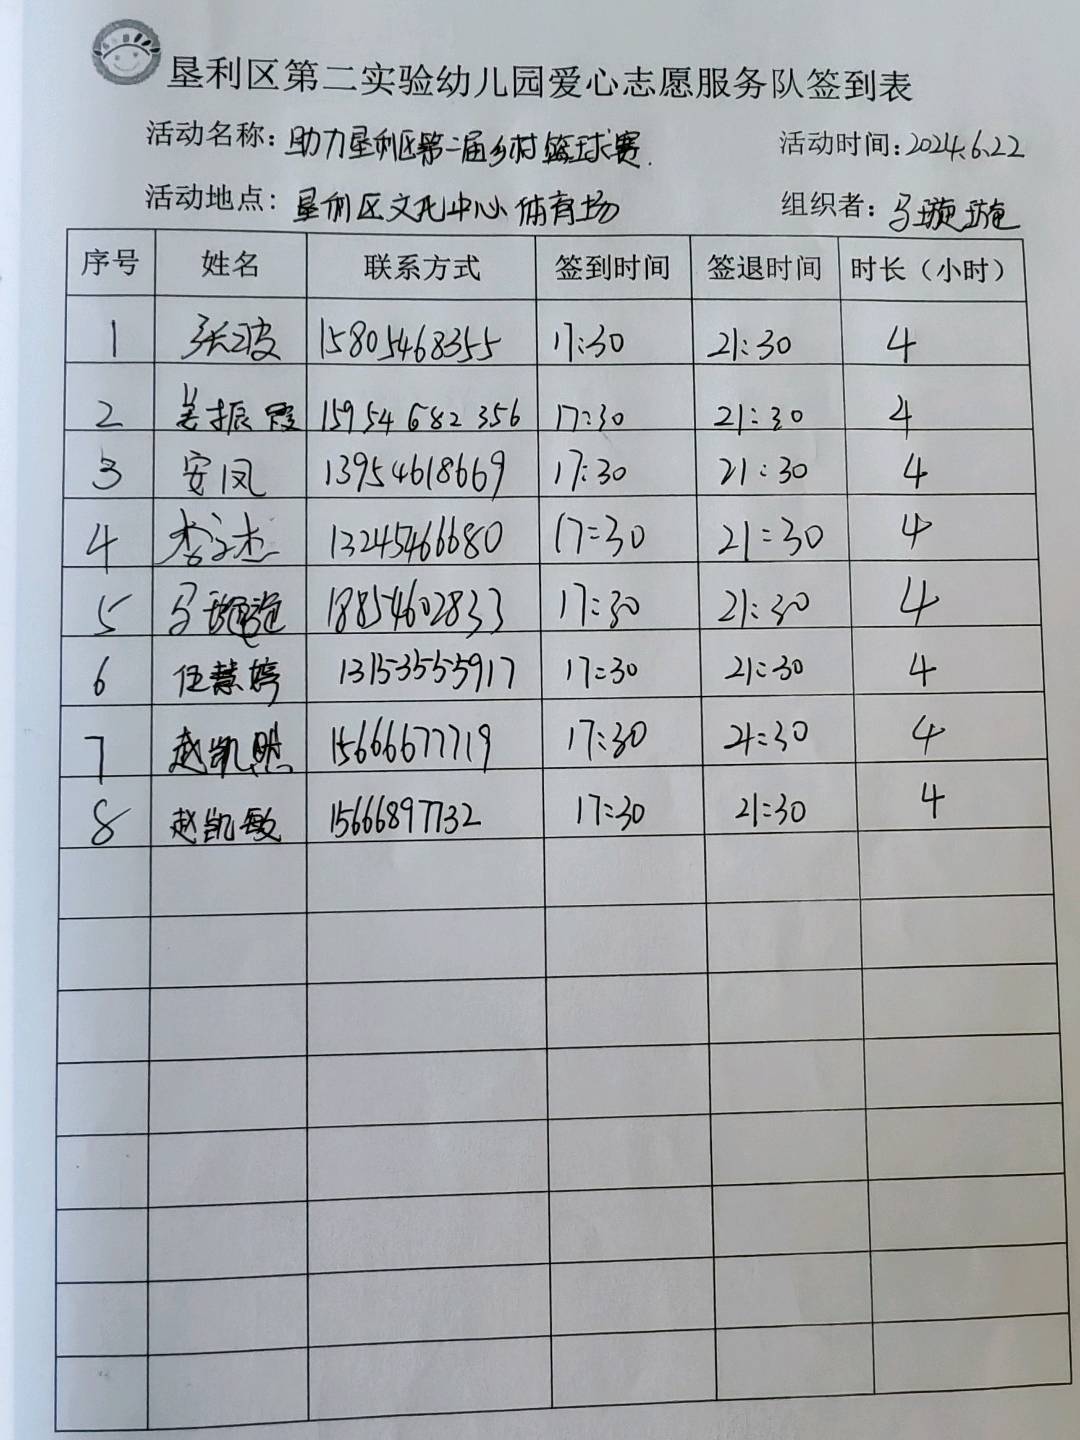 垦利区第二实验幼儿园爱心志愿服务队签到表
活动名称：助力垦利区第二届乡村篮球赛. 活动时间：2024.6.22
活动地点：垦利区文化中心体育场 组织者：马璇璇
序号 姓名 联系方式 签到时间 签退时间 时长（小时）
1 张波 15805468355 17:30 21:30 4
2 姜振霞 15954682356 17:30 21:30 4
3 安凤 13954618669 17:30 21:30 4
4 李文杰 13245466680 17:30 21:30 4
5 马璇璇 18854602833 17:30 21:30 4
6 任慧婷 13153555917 17:30 21:30 4
7 赵凯 15666677719 17:30 21:30 4
8 赵凯敏 15666897732 17:30 21:30 4